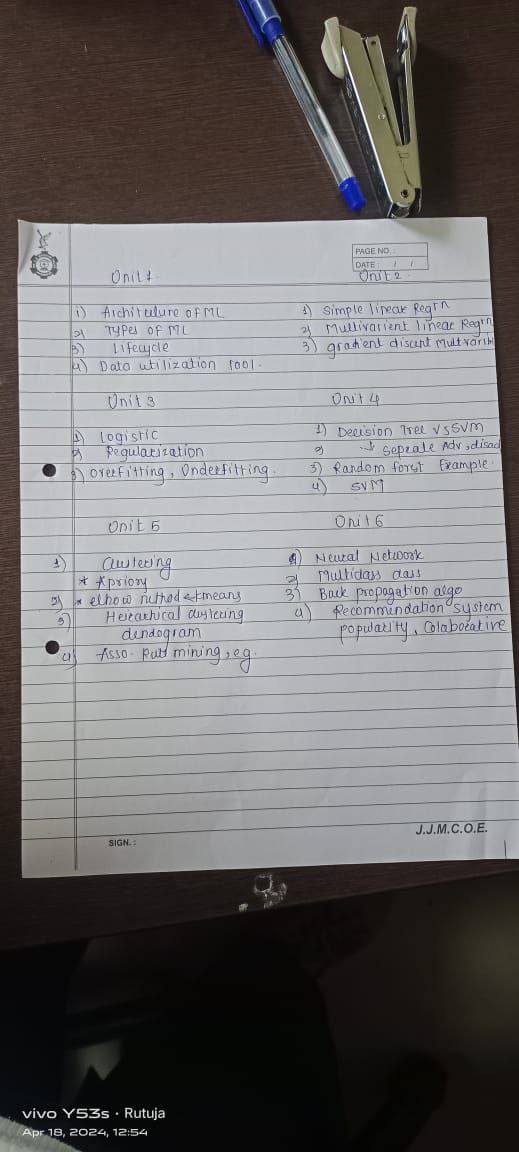 PAGE NO. :
DATE : / /
Unit 1.
i) Architecture OF ML
2) Types OF ML
3) Lifecycle
4) Data utilization tool.
Unit 2.
1) Simple linear Regrn
2) Multivarient linear Regrn
3) gradient discent multvaribl
Unit 3
1) logistic
2) Regularization
3) Overfitting, Underfitting.
Unit 4
1) Decision Tree VS SVM
2) ↓ Seprale Adv, disad
3) Random forst Example.
4) SVM
Unit 5
1) Clustering
* Apriory
2) * elbow method kmeans
3) Heirarchical clustering
dendogram
4) Asso. Rule mining, eg.
Unit 6
1) Neural Network
2) Multiclass class
3) Back propagation algo
4) Recommendation System
popularity, Colaborative
J.J.M.C.O.E.
SIGN. :
vivo Y53s · Rutuja
Apr 18, 2024, 12:54